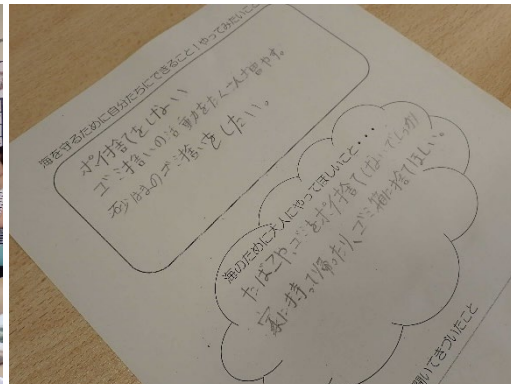 海を守るために自分たちにできること！やってみたいこと
ポイ捨てをしない
ゴミ拾いの活動をたくさん増やす。
砂浜のゴミ拾いをしたい。
海のために大人にやってほしいこと・・・
たばこや、ゴミをポイ捨てしないでしっかり
家に持って帰ったり、ゴミ箱に捨てほしい。
聞いてきづいたこと